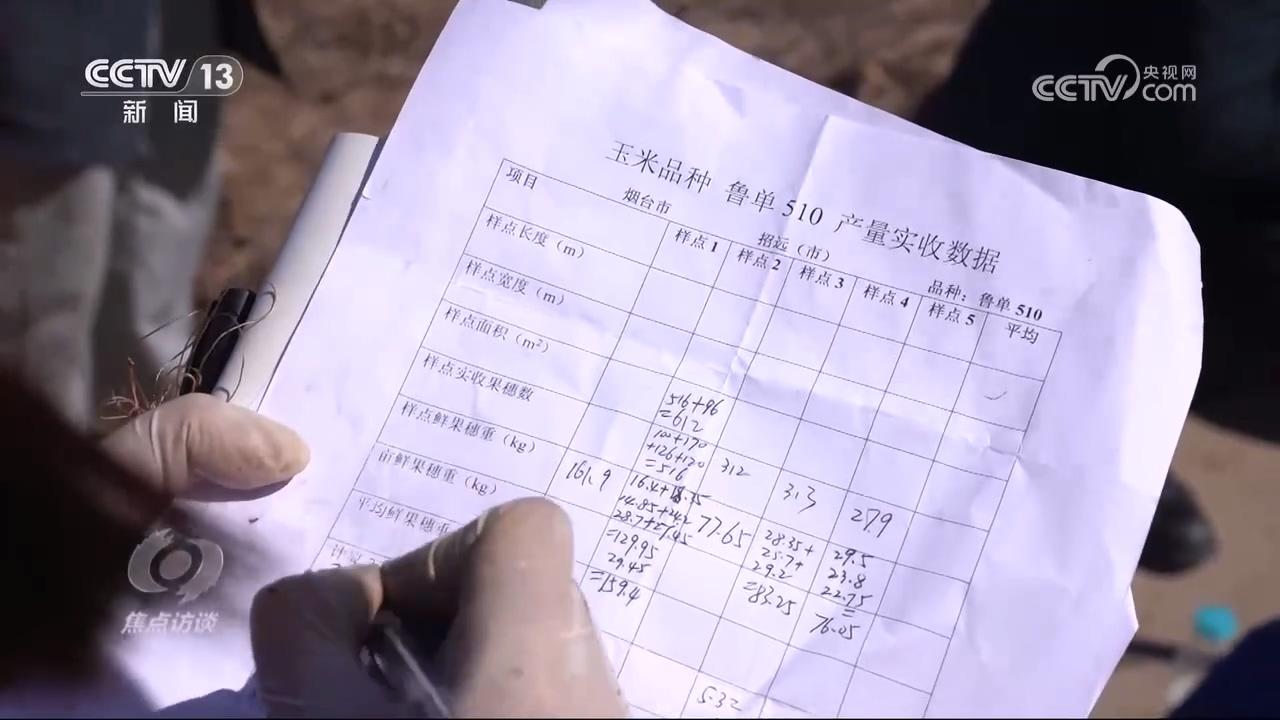 CCTV 13
新闻
央视网
CCTV.com
玉米品种 鲁单 510 产量实收数据
烟台市 招远（市） 品种：鲁单 510
项目 样点 1 样点 2 样点 3 样点 4 样点 5 平均
样点长度（m）
样点宽度（m）
样点面积（m²）
样点实收果穗数
516+96
=612
100+170
+126+120
=516
312
313
279
样点鲜果穗重（kg）
161.9
28.7+27.45
=129.95
29.45
=159.4
77.65
28.35+
25.7+
29.2
=83.25
29.5
23.8
22.75
=
76.05
亩鲜果穗重（kg）
平均鲜果穗重
5.32
焦点访谈